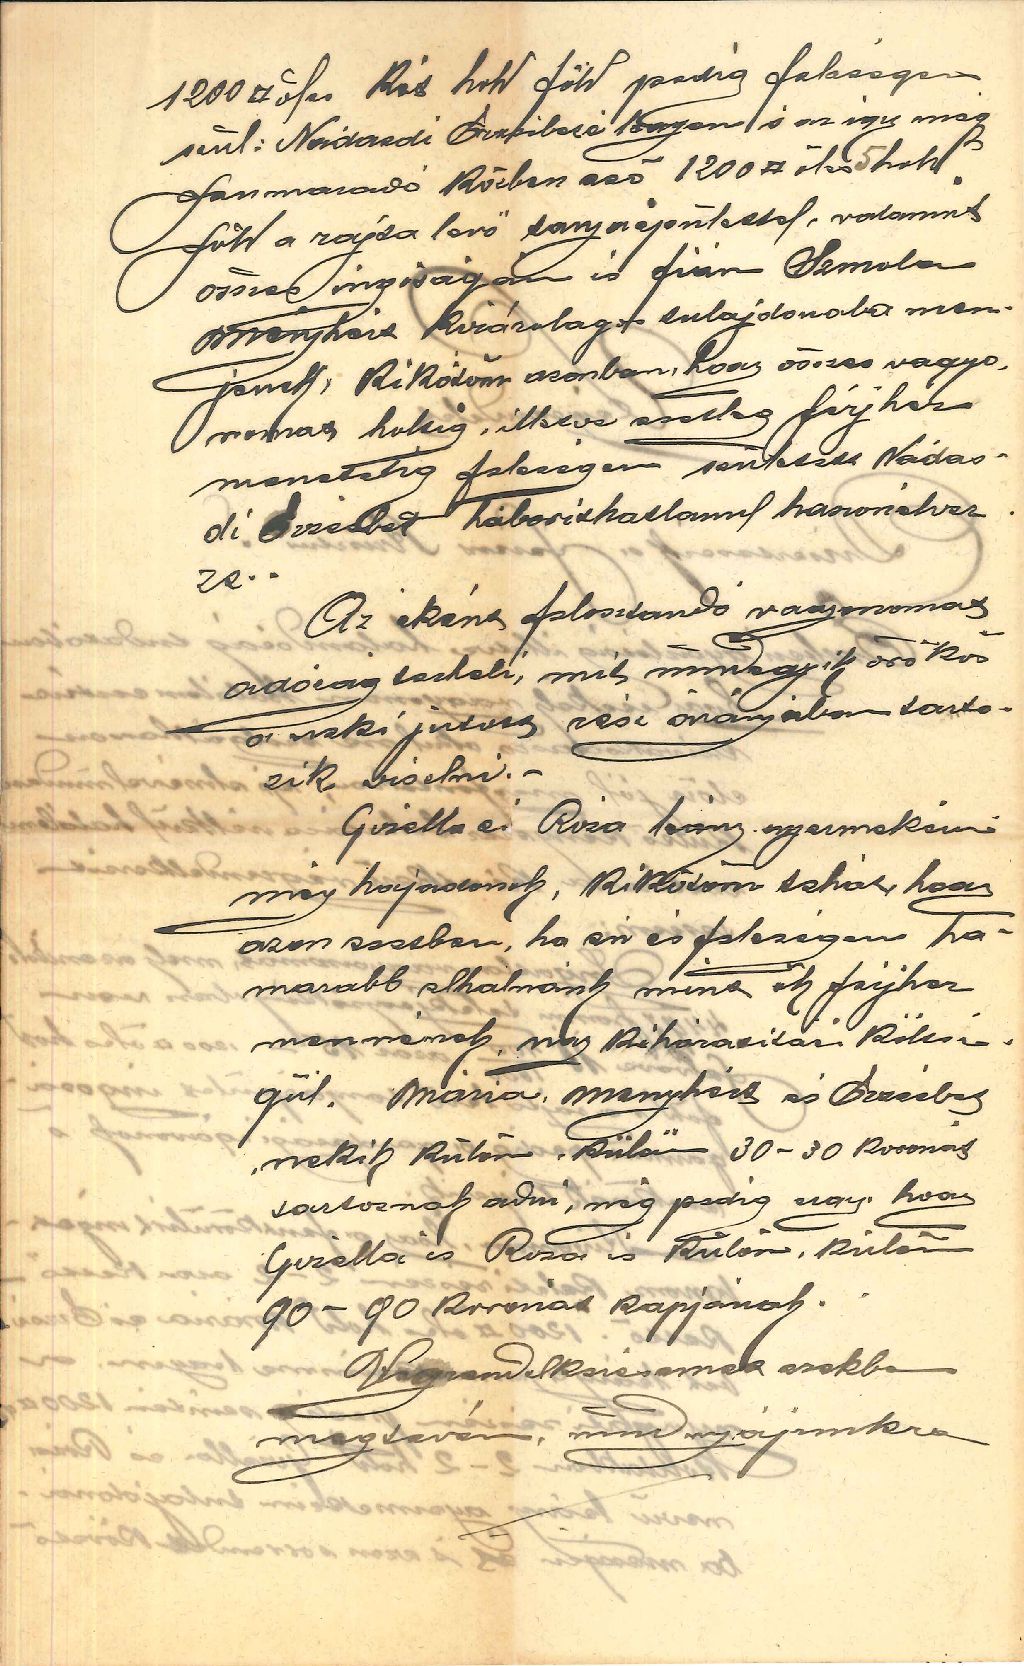 1200 □ öles Két hold föld pedig feleségem
szül: Nádasdi Erzsébeté legyen s az igy meg
fenmaradó közben eső 1200 □ öles 5 hold
föld a rajta levő tanyaépülettel, valamint
összes ingóságom is fiam Szmola
Menyhért kizárólagos tulajdonába men-
jenek, kikötöm azonban, hogy összes vagyo-
nomat holtig, illetve esetleg férjhez
meneteleig feleségem született Nádas-
di Erzsébet háborithatlanul haszonélvez-
ze.-
Az eként felosztandó vagyonomat
adósság terheli, mit mindegyik örökös
a neki jutott rész arányában tarto-
zik viselni.-
Gizella és Róza leány gyermekeim
még hajadonok, kikötöm tehát, hogy
azon esetben, ha én és feleségem ha-
marabb elhalnánk mint ők férjhez
mennének, ugy kiházasitási költsé-
gül. Mária, Menyhért és Erzsébet
nekik külön, külön 30-30 koronát
tartoznak adni, még pedig ugy, hogy
Gizella is Róza is külön, külön
90-90 koronát kapjanak.
Végrendelkezésemet ezekbe
megtevén, mindnyájunkra